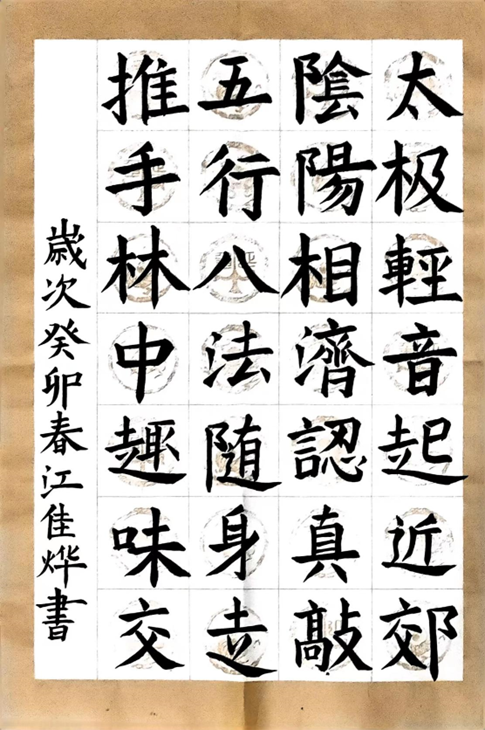 太极輕音起近郊
陰陽相濟認真敲
五行八法随身走
推手林中趣味交
歲次癸卯春江佳烨書